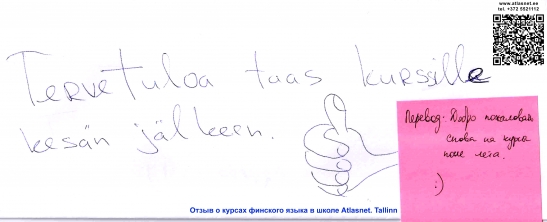 www.atlasnet.ee
tel. +372 5521112
Tervetuloa taas kurssille
kesän jälkeen.
Перевод: Добро пожаловать
снова на курсы
после лета.
:)
Отзыв о курсах финского языка в школе Atlasnet. Tallinn